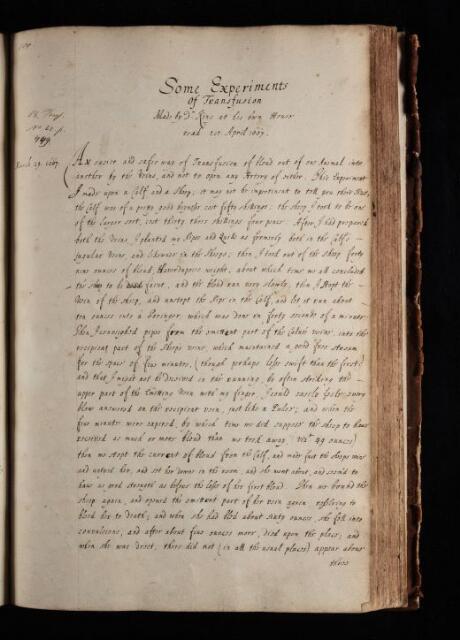 Some Experiments
Of Transfusion
Made by Dr King at his own House
read 1st April 1667.
No. 25. p.
449
March 29. 1667
An easier and safer way of Transfusion of blood out of one Animal into
another by the Veins, and not to open any Artery of either. This Experiment
I made upon a Calf and a Sheep; it may not be impertinent to tell you their Size,
the Calf was of a pretty good bigness cost fifty shillings; the sheep I took to be one
of the larger sort, cost thirty three shillings four pence. After I had prepared
both the Veins, I planted my Pipes and Quills as formerly both in the Calf's
Jugular Vein, and likewise in the Sheeps; then I took out of the sheep forty
nine ounces of blood, Haverdupois weight, about which time we all concluded
the sheep to be faint, and the blood ran very slowly, then I stopt the
Vein of the sheep, and unstopt the Pipe in the Calf, and let it run about
ten ounces into a Poringer, which was done in forty seconds of a minute
then I connected pipes from the emittent part of the Calves veine, into the
recipient part of the sheeps veine, which maintained a good free stream
for the space of five minutes, (though perhaps less swift than the first)
and that I might not be deceived in the running, by often striking the
upper part of the emitting Vein with my finger, I could easily feel every
blow answered on the recipient vein, just like a Pulse; and when the
five minutes were expired, by which time we did suppose the sheep to have
received as much or more blood than we took away, (Vizt 49 ounces)
then we stopt the current of blood from the Calf, and made fast the sheeps veine
and untyed her, and set her downe in the room, and she went about, and seem'd to
have as good strength as before the losse of her first blood. Then we bound the
sheep again, and opened the emittent part of her vein again resolving to
bleed her to death; and when she had bled about sixty ounces she fell into
convulsions, and after about five ounces more, died upon the place; and
when she was drest, there did not (in all the usual places) appear above
three